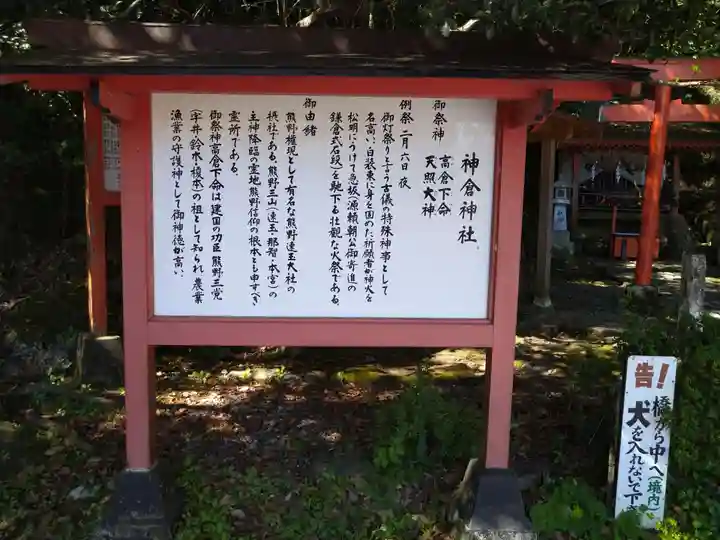 神倉神社
御祭神 高倉下命
天照大神
例祭 二月六日夜
御灯祭りと言う古儀の特殊神事として
名高い。白装束に身を固めた祈願者が神火を
松明にうけて急坂(源頼朝公御寄進の
鎌倉式石段)を馳下る壮観な火祭である。
御由緒
熊野権現として有名な熊野速玉大社の
摂社である。熊野三山(速玉・那智・本宮)の
主神降臨の霊地熊野信仰の根本とも申すべき
霊所である。
御祭神高倉下命は建国の功臣熊野三党
(宇井鈴木榎本)の祖として知られ、農業
漁業の守護神として御神徳が高い。
告!
橋から中へ(境内)
犬を入れないで下さ